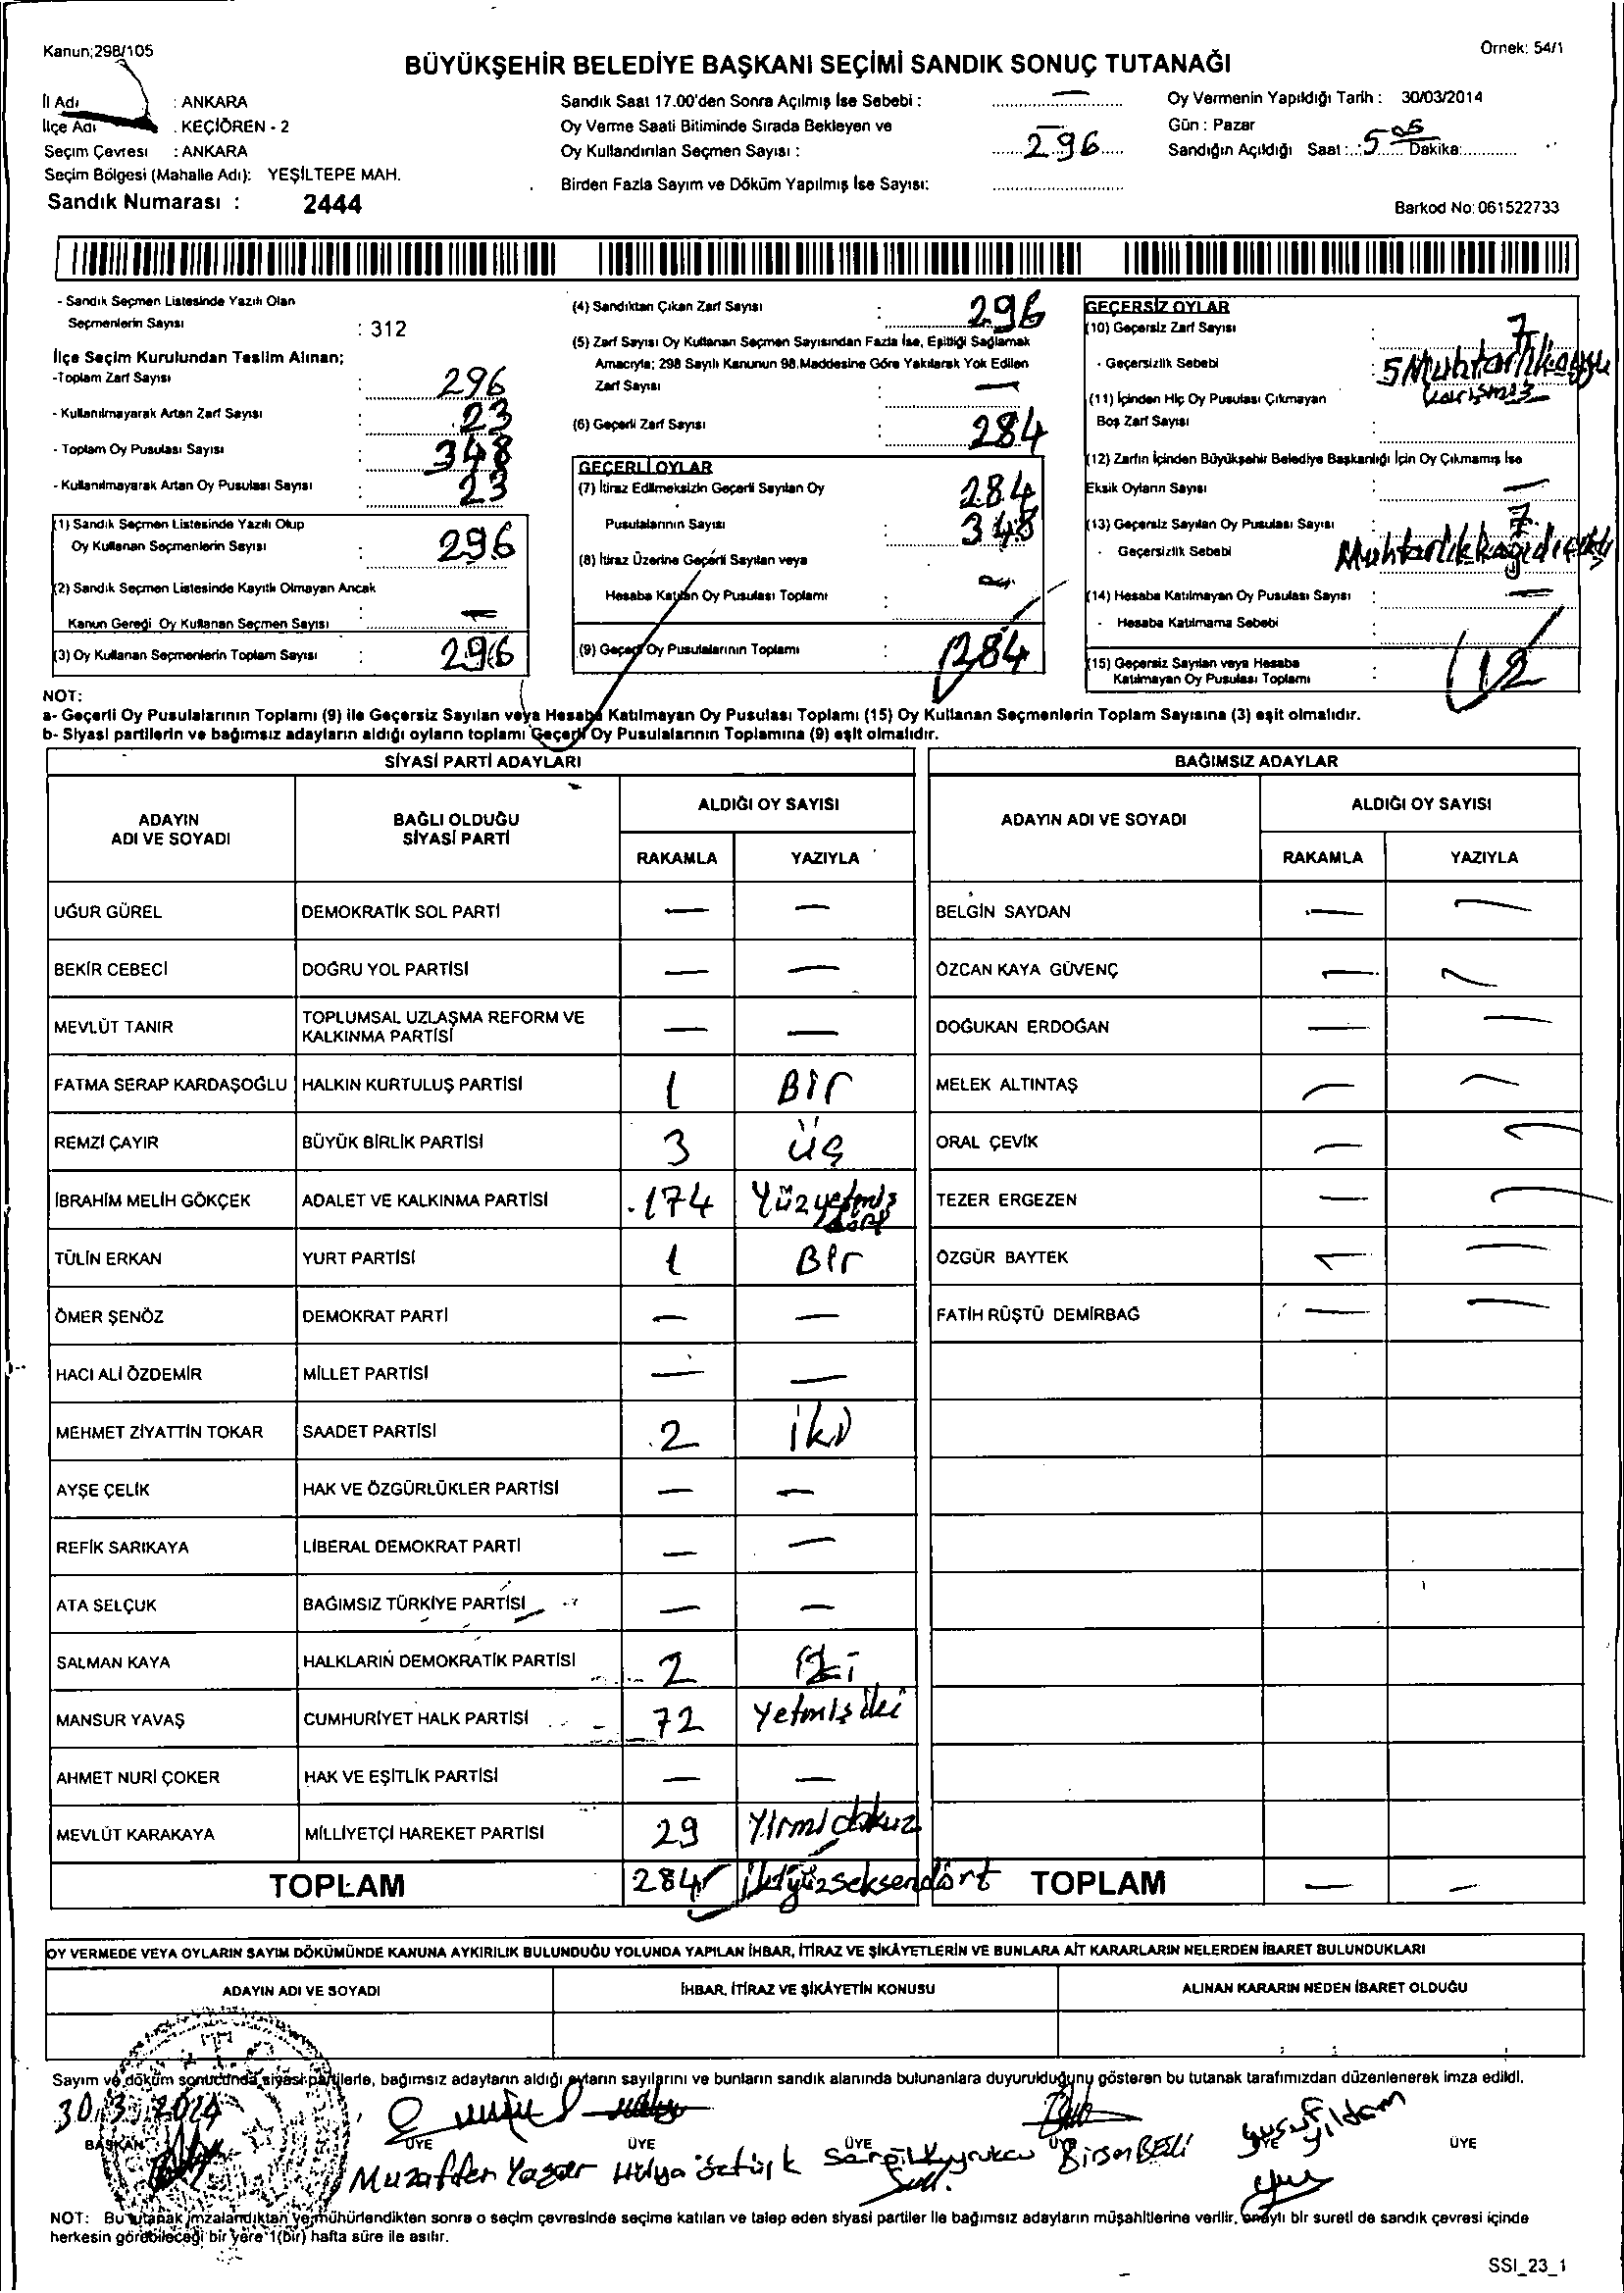 Kanun;298/105
Örnek: 54/1
BÜYÜKŞEHİR BELEDİYE BAŞKANI SEÇİMİ SANDIK SONUÇ TUTANAĞI
İl Adı : ANKARA
İlçe Adı . KEÇİÖREN - 2
Seçim Çevresi : ANKARA
Seçim Bölgesi (Mahalle Adı): YEŞİLTEPE MAH.
Sandık Numarası : 2444
Sandık Saat 17.00'den Sonra Açılmış İse Sebebi : —
Oy Verme Saati Bitiminde Sırada Bekleyen ve
Oy Kullandırılan Seçmen Sayısı : 296
Birden Fazla Sayım ve Döküm Yapılmış İse Sayısı:
Oy Vermenin Yapıldığı Tarih : 30/03/2014
Gün : Pazar
Sandığın Açıldığı Saat : 5 05 Dakika:
Barkod No: 061522733
- Sandık Seçmen Listesinde Yazılı Olan
Seçmenlerin Sayısı : 312
İlçe Seçim Kurulundan Teslim Alınan;
-Toplam Zarf Sayısı : 296
- Kullanılmayarak Artan Zarf Sayısı : 23
- Toplam Oy Pusulası Sayısı : 348
- Kullanılmayarak Artan Oy Pusulası Sayısı : 23
(1) Sandık Seçmen Listesinde Yazılı Olup
Oy Kullanan Seçmenlerin Sayısı : 296
(2) Sandık Seçmen Listesinde Kayıtlı Olmayan Ancak
Kanun Gereği Oy Kullanan Seçmen Sayısı : —
(3) Oy Kullanan Seçmenlerin Toplam Sayısı : 296
(4) Sandıktan Çıkan Zarf Sayısı : 296
(5) Zarf Sayısı Oy Kullanan Seçmen Sayısından Fazla İse, Eşitliği Sağlamak
Amacıyla; 298 Sayılı Kanunun 98.Maddesine Göre Yakılarak Yok Edilen
Zarf Sayısı : —
(6) Geçerli Zarf Sayısı : 284
GEÇERLİ OYLAR
(7) İtiraz Edilmeksizin Geçerli Sayılan Oy 284
Pusulalarının Sayısı : 348
(8) İtiraz Üzerine Geçerli Sayılan veya
Hesaba Katılan Oy Pusulası Toplamı :
(9) Geçerli Oy Pusulalarının Toplamı : 284
GEÇERSİZ OYLAR
(10) Geçersiz Zarf Sayısı : 7
- Geçersizlik Sebebi : 5 Muhtarlık oyu
karışmış
(11) İçinden Hiç Oy Pusulası Çıkmayan
Boş Zarf Sayısı :
(12) Zarfın İçinden Büyükşehir Belediye Başkanlığı İçin Oy Çıkmamış İse
Eksik Oyların Sayısı : —
(13) Geçersiz Sayılan Oy Pusulası Sayısı : 7
- Geçersizlik Sebebi Muhtarlık kağıdı çıktı
(14) Hesaba Katılmayan Oy Pusulası Sayısı : —
- Hesaba Katılmama Sebebi :
(15) Geçersiz Sayılan veya Hesaba
Katılmayan Oy Pusulası Toplamı : 12
NOT:
a- Geçerli Oy Pusulalarının Toplamı (9) ile Geçersiz Sayılan veya Hesaba Katılmayan Oy Pusulası Toplamı (15) Oy Kullanan Seçmenlerin Toplam Sayısına (3) eşit olmalıdır.
b- Siyasi partilerin ve bağımsız adayların aldığı oyların toplamı Geçerli Oy Pusulalarının Toplamına (9) eşit olmalıdır.
SİYASİ PARTİ ADAYLARI
BAĞIMSIZ ADAYLAR
ADAYIN
ADI VE SOYADI
BAĞLI OLDUĞU
SİYASİ PARTİ
ALDIĞI OY SAYISI
RAKAMLA YAZIYLA
ADAYIN ADI VE SOYADI
ALDIĞI OY SAYISI
RAKAMLA YAZIYLA
UĞUR GÜREL DEMOKRATİK SOL PARTİ — — BELGİN SAYDAN — —
BEKİR CEBECİ DOĞRU YOL PARTİSİ — — ÖZCAN KAYA GÜVENÇ — —
MEVLÜT TANIR TOPLUMSAL UZLAŞMA REFORM VE
KALKINMA PARTİSİ — — DOĞUKAN ERDOĞAN — —
FATMA SERAP KARDAŞOĞLU HALKIN KURTULUŞ PARTİSİ 1 Bir MELEK ALTINTAŞ — —
REMZİ ÇAYIR BÜYÜK BİRLİK PARTİSİ 3 üç ORAL ÇEVİK — —
İBRAHİM MELİH GÖKÇEK ADALET VE KALKINMA PARTİSİ 174 Yüzyetmiş
dört TEZER ERGEZEN — —
TÜLİN ERKAN YURT PARTİSİ 1 Bir ÖZGÜR BAYTEK — —
ÖMER ŞENÖZ DEMOKRAT PARTİ — — FATİH RÜŞTÜ DEMİRBAĞ — —
HACI ALİ ÖZDEMİR MİLLET PARTİSİ — —
MEHMET ZİYATTİN TOKAR SAADET PARTİSİ 2 iki
AYŞE ÇELİK HAK VE ÖZGÜRLÜKLER PARTİSİ — —
REFİK SARIKAYA LİBERAL DEMOKRAT PARTİ — —
ATA SELÇUK BAĞIMSIZ TÜRKİYE PARTİSİ — —
SALMAN KAYA HALKLARIN DEMOKRATİK PARTİSİ 2 İki
MANSUR YAVAŞ CUMHURİYET HALK PARTİSİ 72 Yetmiş iki
AHMET NURİ ÇOKER HAK VE EŞİTLİK PARTİSİ — —
MEVLÜT KARAKAYA MİLLİYETÇİ HAREKET PARTİSİ 29 Yirmidokuz
TOPLAM 284 ikiyüzseksendört TOPLAM — —
OY VERMEDE VEYA OYLARIN SAYIM DÖKÜMÜNDE KANUNA AYKIRILIK BULUNDUĞU YOLUNDA YAPILAN İHBAR, İTİRAZ VE ŞİKÂYETLERİN VE BUNLARA AİT KARARLARIN NELERDEN İBARET BULUNDUKLARI
ADAYIN ADI VE SOYADI İHBAR, İTİRAZ VE ŞİKÂYETİN KONUSU ALINAN KARARIN NEDEN İBARET OLDUĞU
Sayım ve döküm sonucunda siyasi partilerle, bağımsız adayların aldığı oyların sayılarını ve bunların sandık alanında bulunanlara duyurulduğunu gösteren bu tutanak tarafımızdan düzenlenerek imza edildi.
30.3.2014
BAŞKAN ÜYE ÜYE ÜYE ÜYE ÜYE ÜYE
Muzaffer Yaşar Hülya öztürk Serpil Kuyrukcu Birsen BESLİ Yusuf Yıldam
NOT: Bu tutanak imzalandıktan ve mühürlendikten sonra o seçim çevresinde seçime katılan ve talep eden siyasi partiler ile bağımsız adayların müşahitlerine verilir, onaylı bir sureti de sandık çevresi içinde
herkesin görebileceği bir yere 1(bir) hafta süre ile asılır.
SSI_23_1